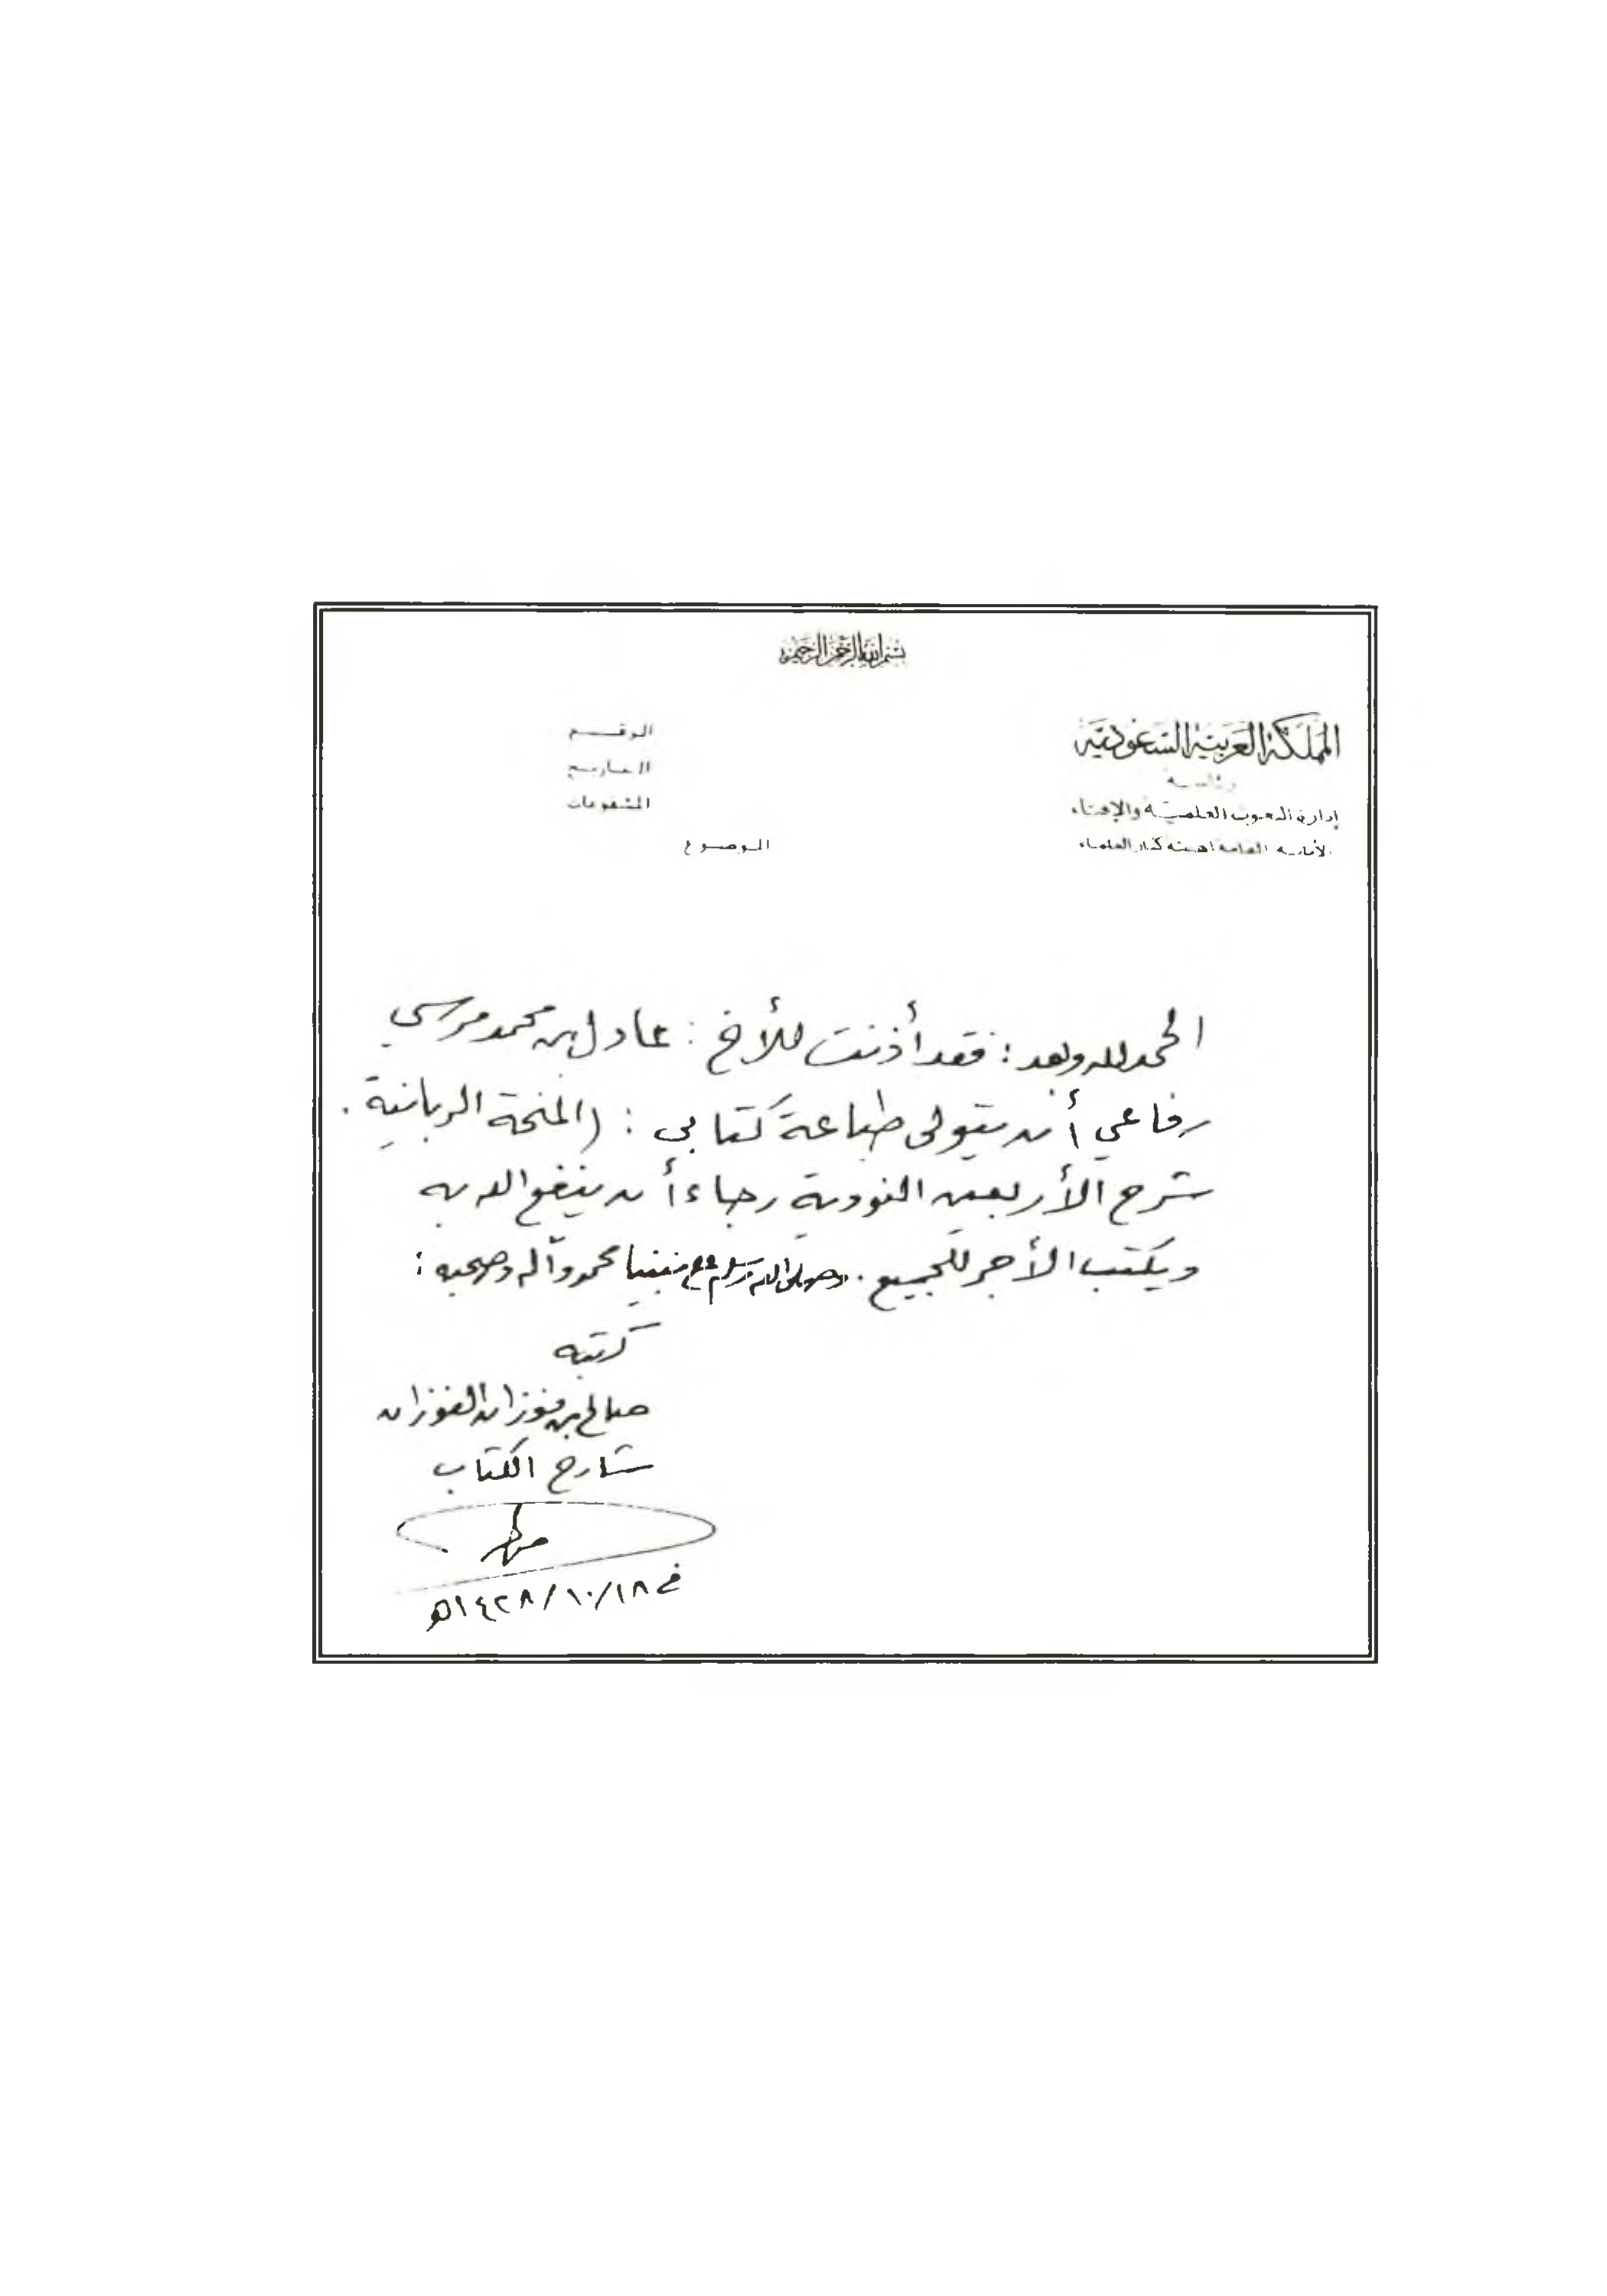 بسم الله الرحمن الرحيم
المملكة العربية السعودية
رئاسة
إدارة البحوث العلمية والإفتاء
الأمانة العامة لهيئة كبار العلماء
الرقم
التاريخ
المشفوعات
الموضوع
الحمد لله وبعد : فقد أذنت للأخ : عادل بن محمد مرسي
رفاعي أن يتولى طباعة كتابي : (المنحة الربانية .
شرح الأربعين النووية رجاء أن ينفع الله به
ويكتب الأجر للجميع . وصلى الله وسلم على نبينا محمد وآله وصحبه :
كتبه
صالح بن فوزان الفوزان
شارح الكتاب
في ١٤٢٨/١٠/١٨هـ